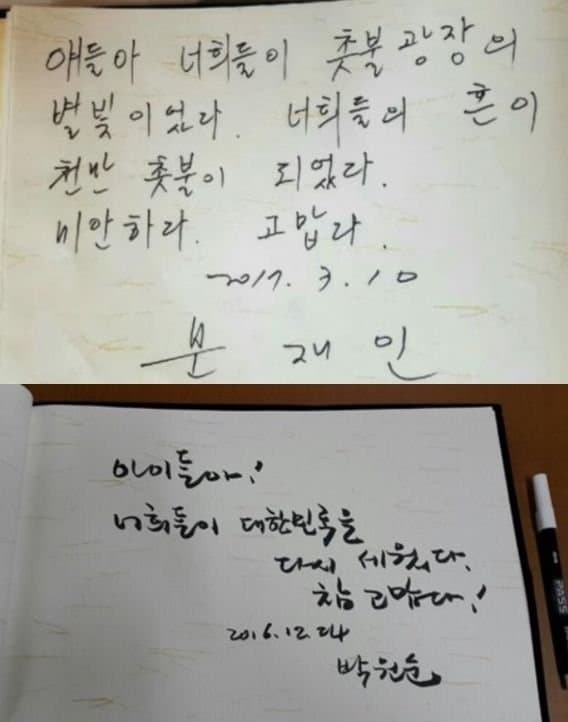 애들아 너희들이 촛불 광장의
별빛이었다. 너희들의 혼이
천만 촛불이 되었다.
미안하다. 고맙다.
2017. 3. 10
문 재 인
아이들아!
너희들이 대한민국을
다시 세웠다.
참 고맙다!
2016.12.24
박원순
PASS